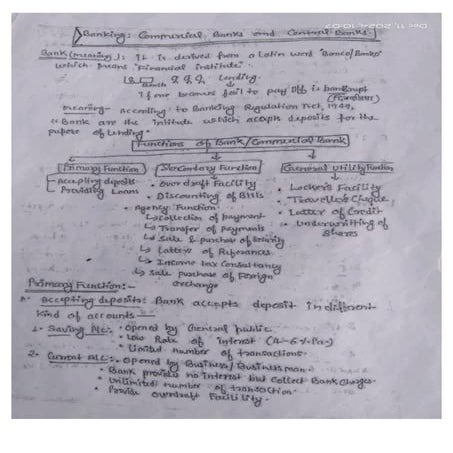 Banking: Commercial Banks and Central Banks.
Bank (meaning): It is derived from a Latin word "Banco/Banks"
which means "Financial institute".
Bench Lending
if one borrower fail to pay off is bankrupt
meaning- according to Banking Regulation Act, 1949,
"Bank are the institute which accepts deposits for the
purpose of lending"
Functions of Bank/Commercial Bank
Primary Function Secondary Function General Utility Function
Accepting deposits
Providing Loans
• Overdraft Facility
• Discounting of Bills
• Agency Function
↳ collection of payment
↳ Transfer of payments
↳ Sale & purchase of Security
↳ Letters of References
↳ Income tax Consultancy
↳ sale purchase of Foreign
exchange
• Lockers Facility
• Traveller's Cheque
• Letter of Credit
• underwritting of
shares
Primary Function:-
Accepting deposits: Bank accepts deposit in different
kind of accounts
1- Saving A/c: • opened by General public
• Low Rate of interest (4-6% Pa.)
• limited number of transactions.
2- Current A/c: • opened by Business/Businessman
• Bank provides no interest but collect Bank charges.
• unlimited number of transaction
• Provide overdraft Facility.